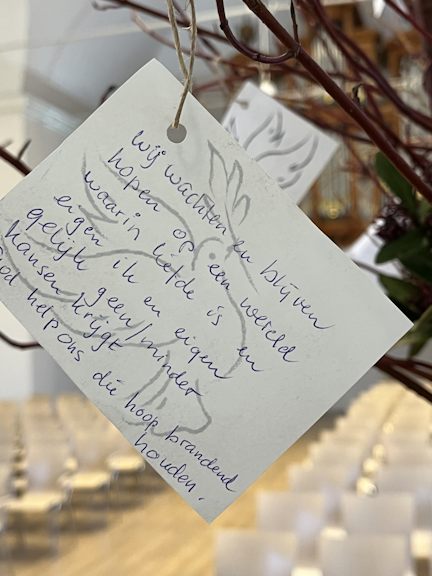 wij wachten en blijven
hopen op een wereld
waarin liefde is en
eigen ik en eigen
gelijk geen/minder
kansen krijgt
God help ons die hoop brandend
houden.